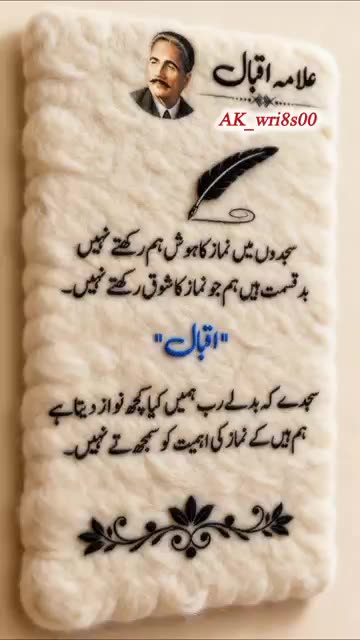 علامہ اقبال
AK_wri8s00
سجدوں میں نماز کا ہوش ہم رکھتے نہیں
بدقسمت ہیں ہم جو نماز کا شوق رکھتے نہیں۔
"اقبال"
سجدے کہ بدلے رب ہمیں کیا کچھ نواز دیتا ہے
ہم ہیں کے نماز کی اہمیت کو سمجھتے نہیں۔